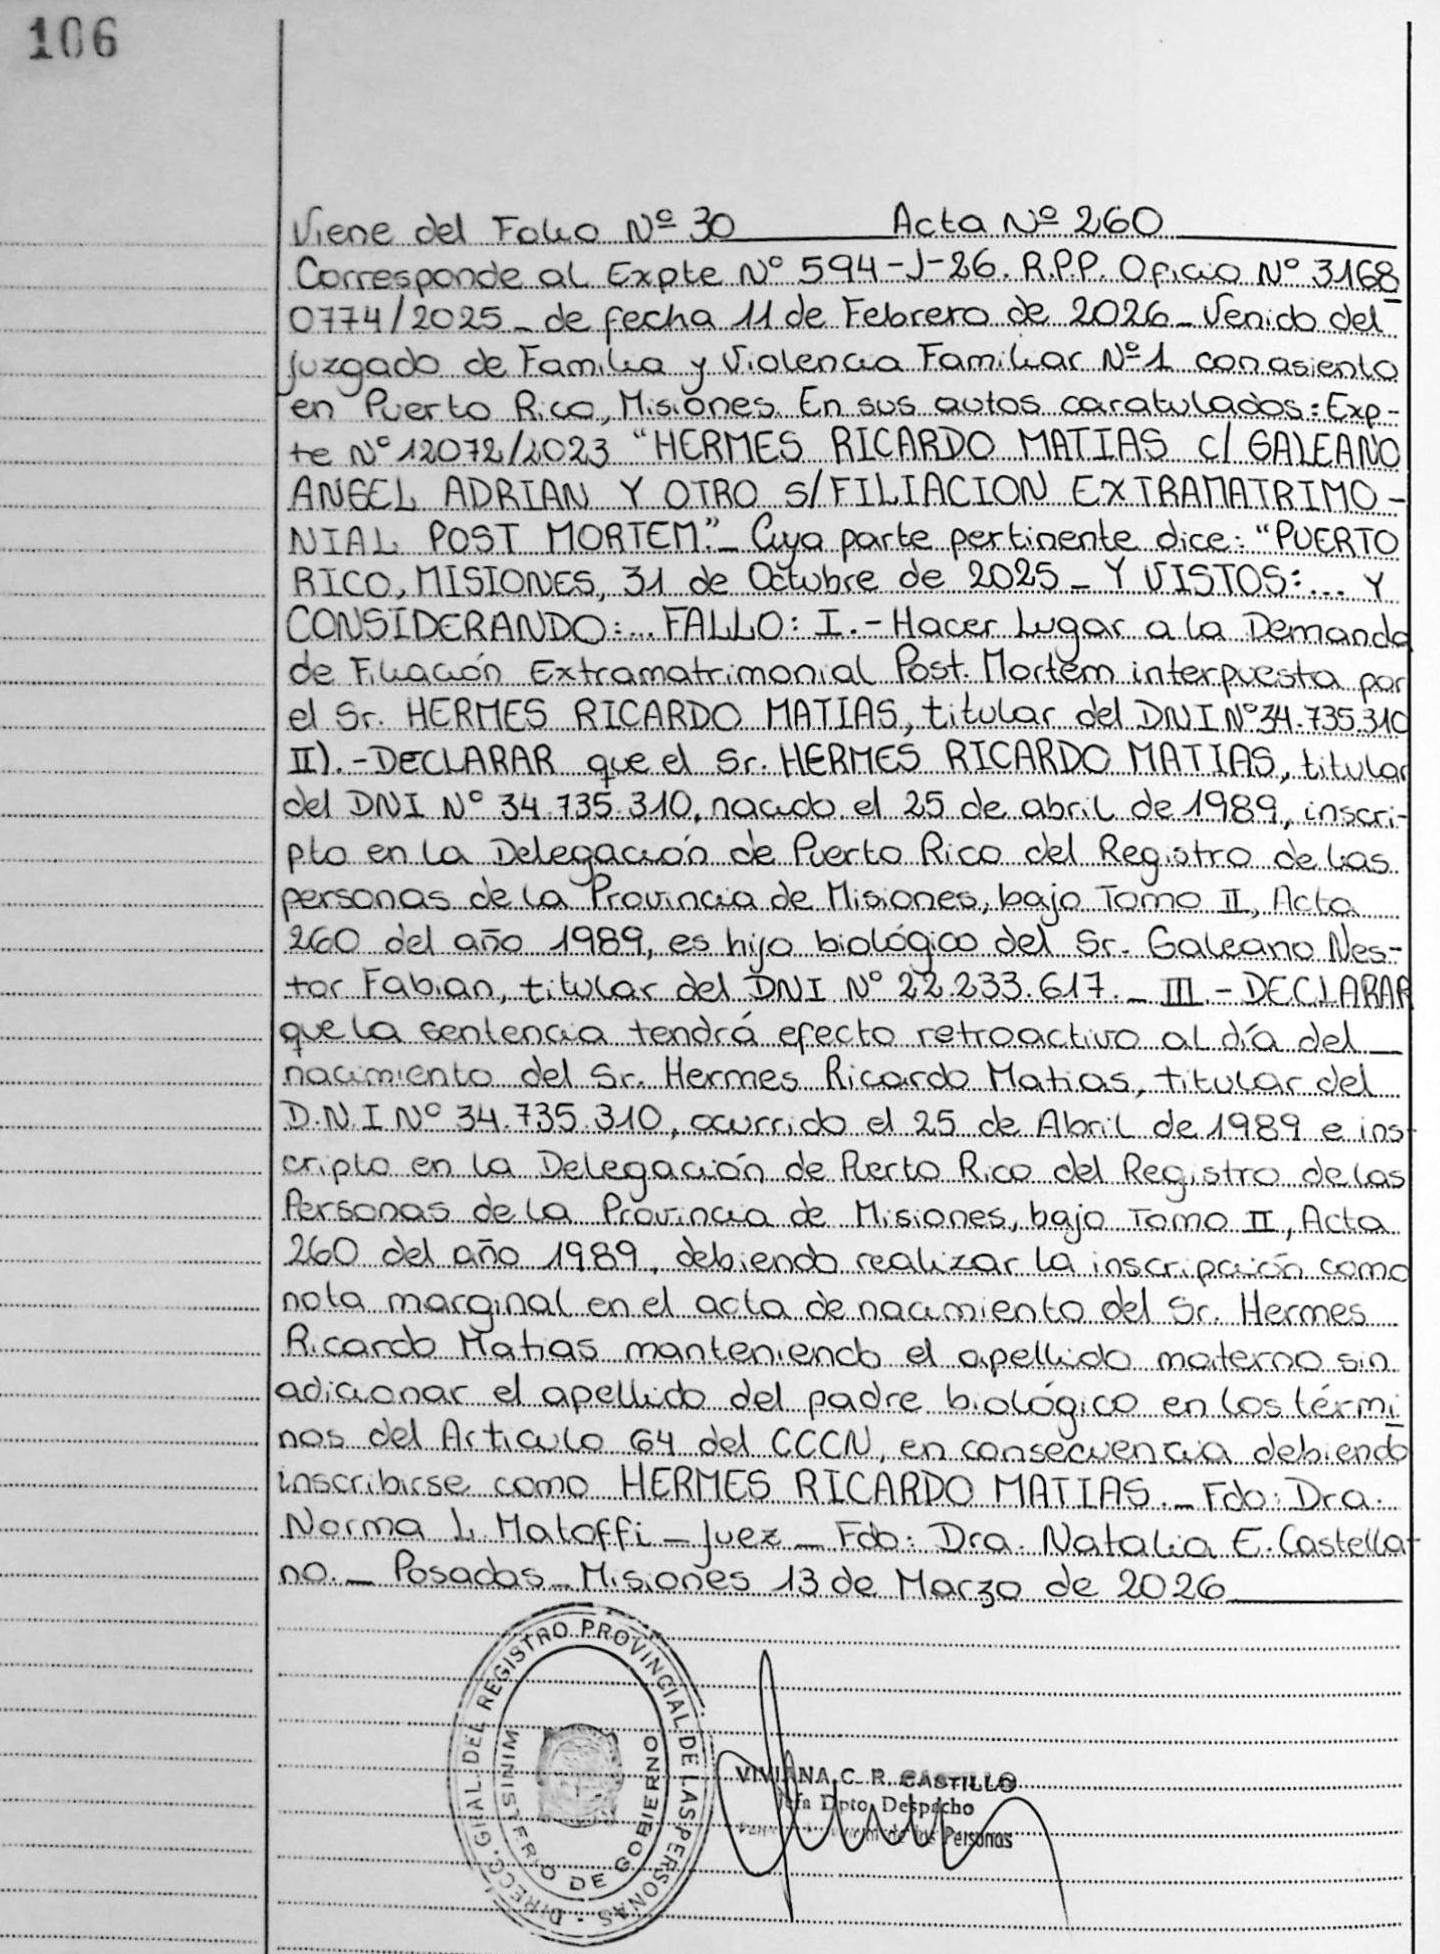 106
Viene del Folio Nº 30 Acta Nº 260
Corresponde al Expte Nº 594-J-26. R.P.P. Oficio Nº 3168
0774/2025_ de fecha 11 de Febrero de 2026_ Venido del
Juzgado de Familia y Violencia Familiar Nº 1 con asiento
en Puerto Rico, Misiones. En sus autos caratulados: Exp-
te Nº 12072/2023 "HERMES RICARDO MATIAS C/ GALEANO
ANGEL ADRIAN Y OTRO S/FILIACION EXTRAMATRIMO-
NIAL POST MORTEM"._ Cuya parte pertinente dice: "PUERTO
RICO, MISIONES, 31 de Octubre de 2025_ Y VISTOS:... Y
CONSIDERANDO:... FALLO: I.- Hacer Lugar a la Demanda
de Filiación Extramatrimonial Post. Mortem interpuesta por
el Sr. HERMES RICARDO MATIAS, titular del DNI Nº 34.735.310
II).-DECLARAR que el Sr. HERMES RICARDO MATIAS, titular
del DNI Nº 34.735.310, nacido el 25 de abril de 1989, inscri-
pto en la Delegación de Puerto Rico del Registro de las
personas de la Provincia de Misiones, bajo Tomo II, Acta
260 del año 1989, es hijo biológico del Sr. Galeano Nes-
tor Fabian, titular del DNI Nº 22.233.617._ III.- DECLARAR
que la sentencia tendrá efecto retroactivo al día del _
nacimiento del Sr. Hermes Ricardo Matias, titular del
D.N.I Nº 34.735.310, ocurrido el 25 de Abril de 1989 e ins-
cripto en la Delegación de Puerto Rico del Registro de las
Personas de la Provincia de Misiones, bajo Tomo II, Acta
260 del año 1989, debiendo realizar la inscripción como
nota marginal en el acta de nacimiento del Sr. Hermes
Ricardo Matias manteniendo el apellido materno sin
adicionar el apellido del padre biológico en los térmi
nos del Articulo 64 del CCCN, en consecuencia debiendo
inscribirse como HERMES RICARDO MATIAS._ Fdo: Dra.
Norma L. Matoffi _ Juez _ Fdo: Dra. Natalia E. Castella-
no._ Posadas_ Misiones 13 de Marzo de 2026
DIRECC. GRAL. DEL REGISTRO PROVINCIAL DE LAS PERSONAS
MINISTERIO DE GOBIERNO
VIVIANA C. R. CASTILLO
Jefa Dpto. Despacho
de las Personas